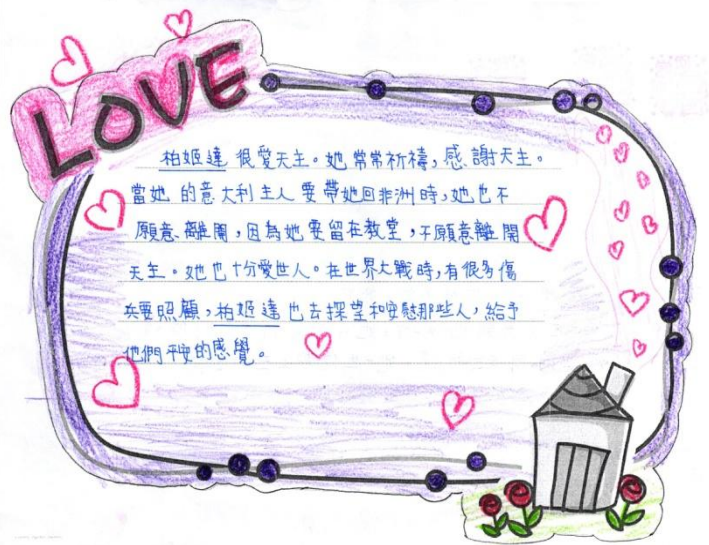 LOVE
柏姬達很愛天主。她常常祈禱,感謝天主。
當她的意大利主人要帶她回非洲時,她也不
願意離開,因為她要留在教堂,不願意離開
天主。她也十分愛世人。在世界大戰時,有很多傷
兵要照顧,柏姬達也去探望和安慰那些人,給予
他們平安的感覺。